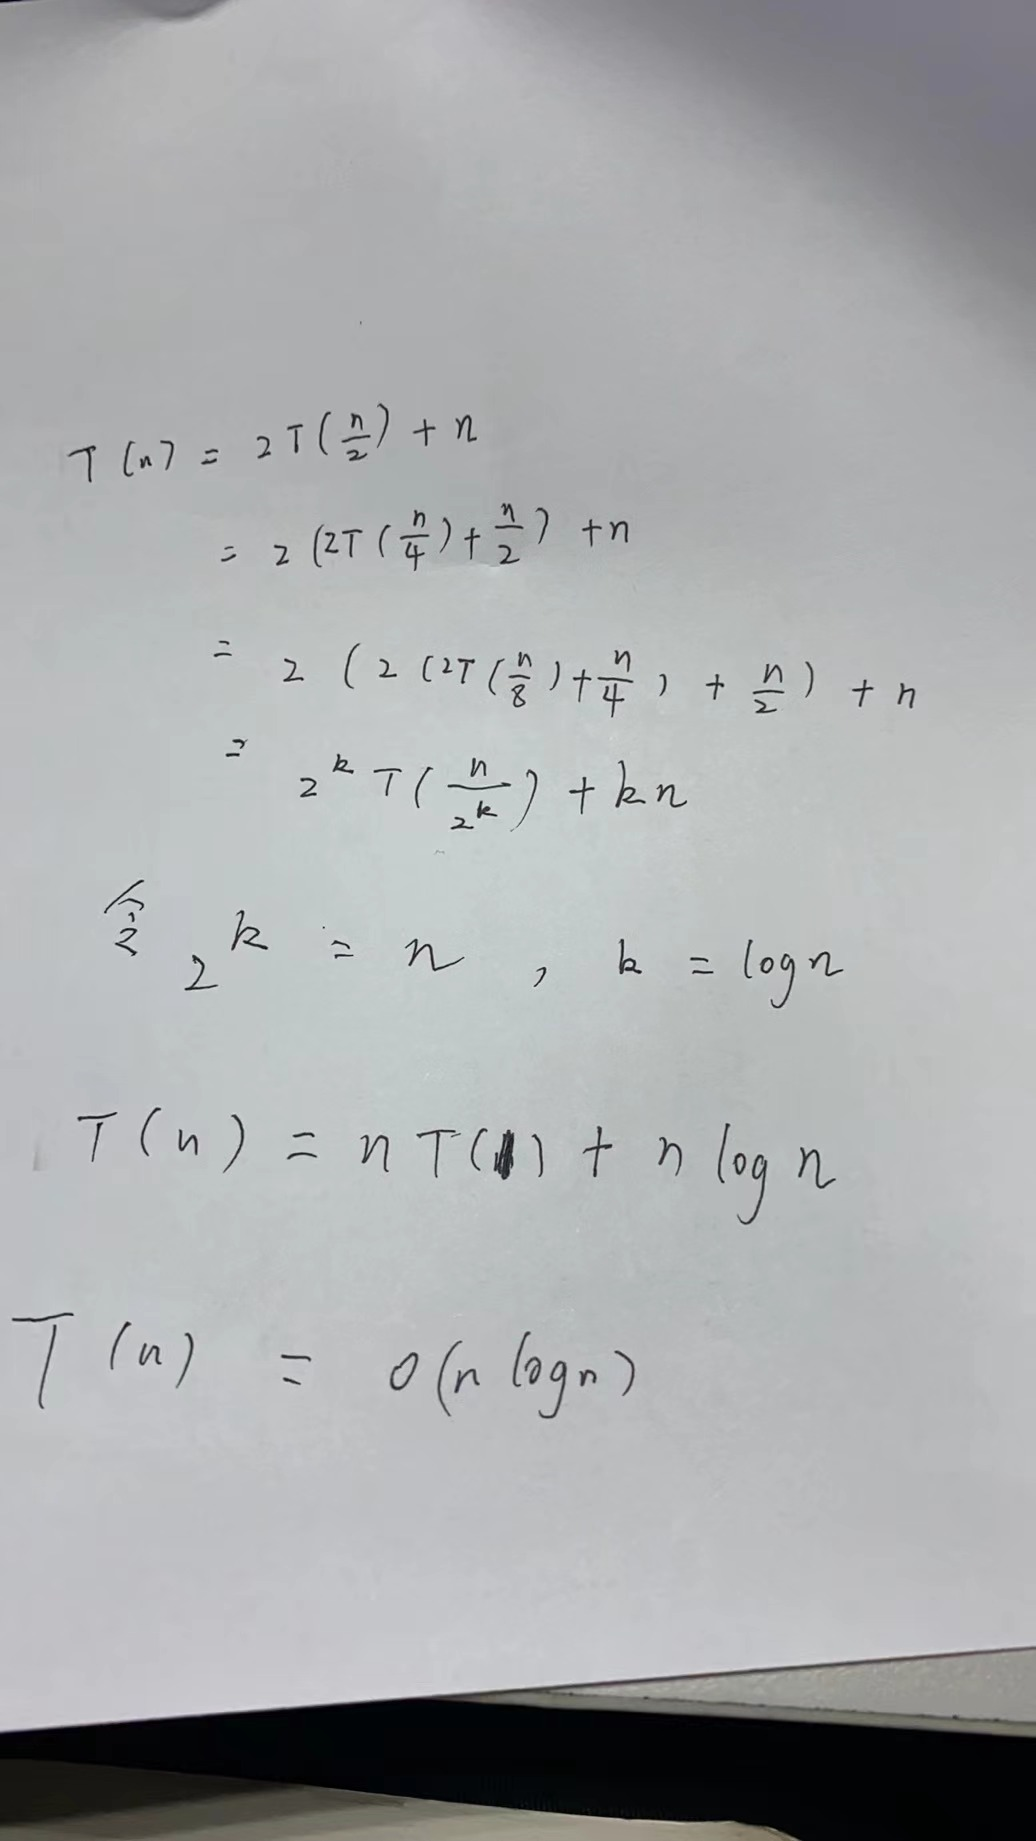 T(n) = 2T(n/2) + n
= 2(2T(n/4) + n/2) + n
= 2(2(2T(n/8) + n/4) + n/2) + n
= 2^k T(n/2^k) + kn
令 2^k = n , k = logn
T(n) = nT(1) + n log n
T(n) = O(n logn)